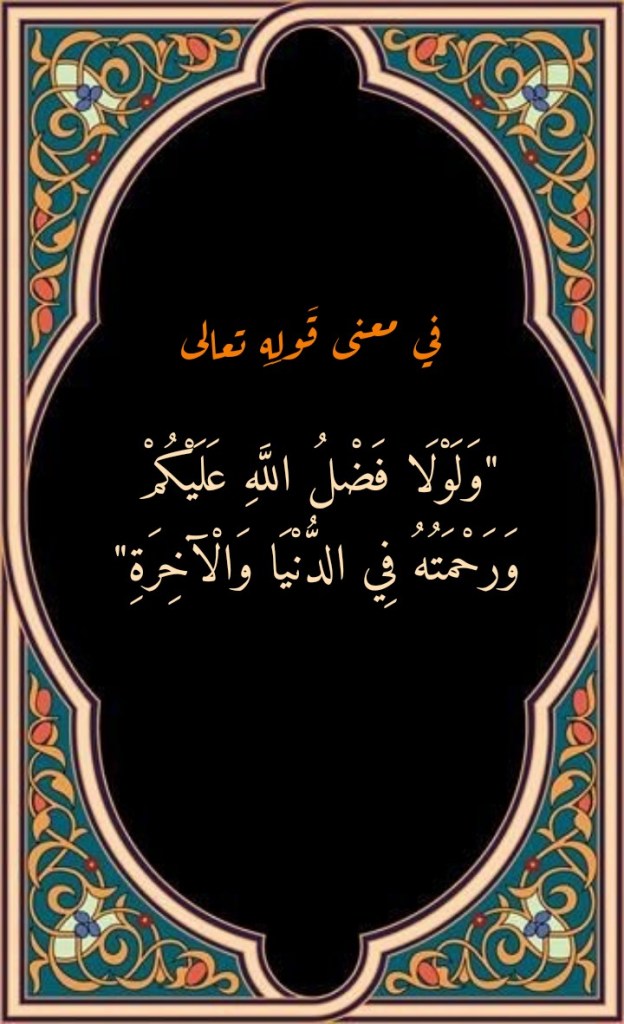 في معنى قَولِهِ تعالى
"وَلَوْلَا فَضْلُ اللَّهِ عَلَيْكُمْ
وَرَحْمَتُهُ فِي الدُّنْيَا وَالْآخِرَةِ"